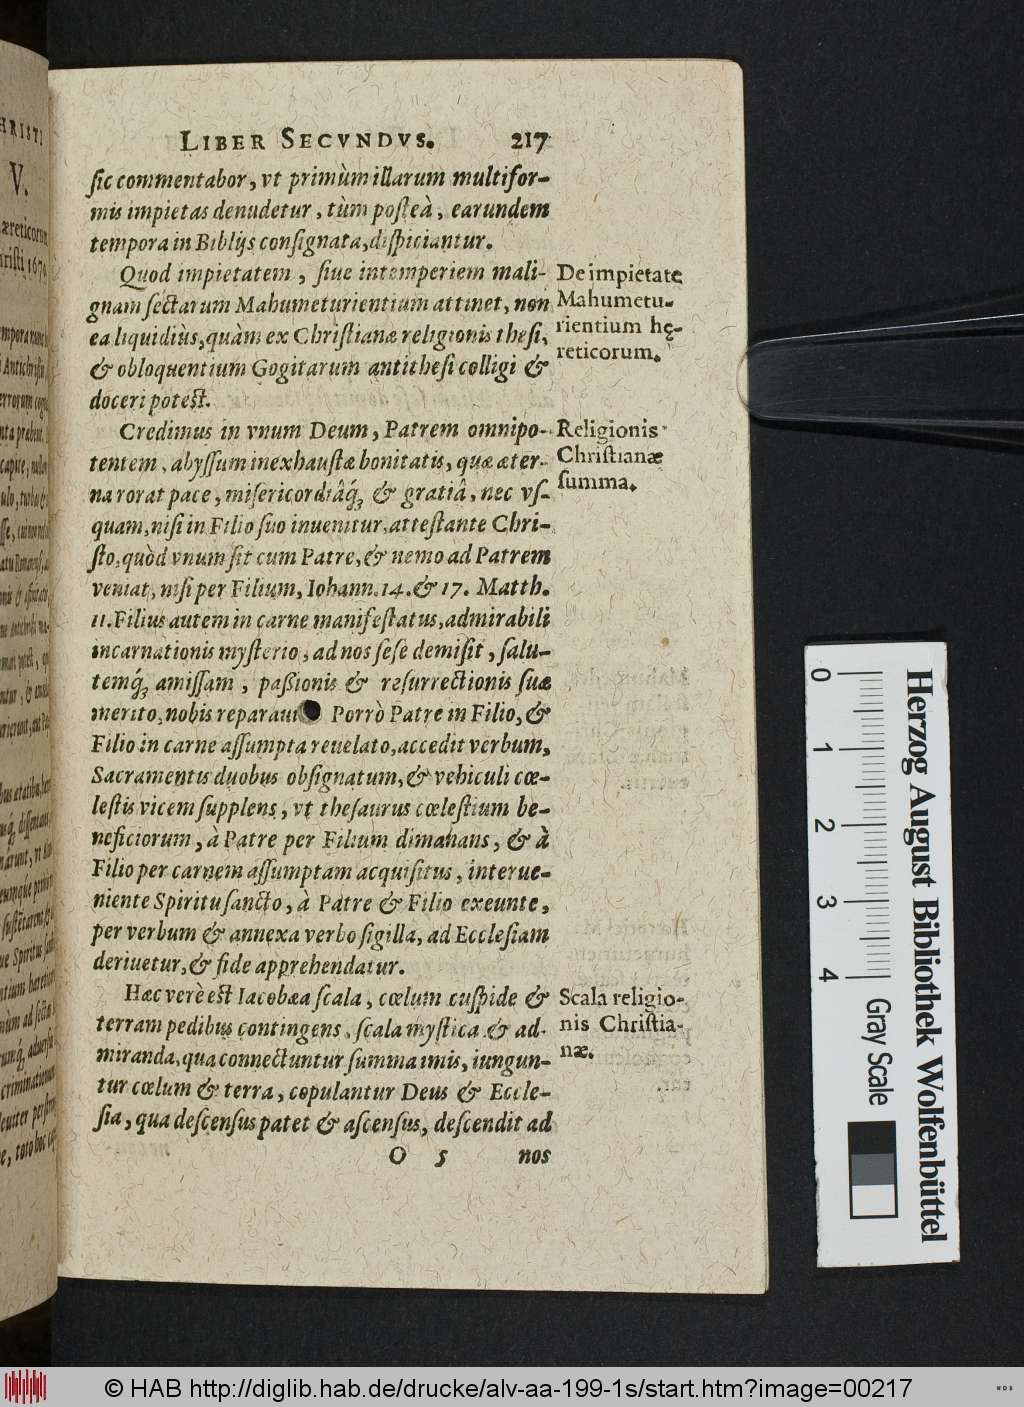 LIBER SECVNDVS. 217
sic commentabor, vt primùm illarum multifor-
mis impietas denudetur, tùm posteà, earundem
tempora in Biblijs consignata, dispiciantur.
Quod impietatem, siue intemperiem mali-
gnam sectarum Mahumeturientium attinet, non
ea liquidiùs, quàm ex Christianæ religionis thesi,
& obloquentium Gogitarum antithesi colligi &
doceri potest.
De impietate
Mahumetu-
rientium hę-
reticorum.
Credimus in vnum Deum, Patrem omnipo-
tentem, abyssum inexhaustæ bonitatis, quæ æter-
na rorat pace, misericordiâq́; & gratiâ, nec vs-
quam, nisi in Filio suo inuenitur, attestante Chri-
sto, quòd vnum sit cum Patre, & nemo ad Patrem
veniat, nisi per Filium, Iohann. 14. & 17. Matth.
11. Filius autem in carne manifestatus, admirabili
incarnationis mysterio, ad nos sese demisit, salu-
temq́; amissam, passionis & resurrectionis suæ
merito, nobis reparaui Porrò Patre in Filio, &
Filio in carne assumpta reuelato, accedit verbum,
Sacramentis duobus obsignatum, & vehiculi cœ-
lestis vicem supplens, vt thesaurus cœlestium be-
neficiorum, à Patre per Filium dimanans, & à
Filio per carnem assumptam acquisitus, interue-
niente Spiritu sancto, à Patre & Filio exeunte,
per verbum & annexa verbo sigilla, ad Ecclesiam
deriuetur, & fide apprehendatur.
Religionis
Christianæ
summa.
Hæc verè est Iacobæa scala, cœlum cuspide &
terram pedibus contingens, scala mystica & ad-
miranda, qua connectuntur summa imis, iungun-
tur cœlum & terra, copulantur Deus & Eccle-
sia, qua descensus patet & ascensus, descendit ad
Scala religio-
nis Christia-
næ.
O 5 nos
Herzog August Bibliothek Wolfenbüttel
0 1 2 3 4
Gray Scale
© HAB http://diglib.hab.de/drucke/alv-aa-199-1s/start.htm?image=00217